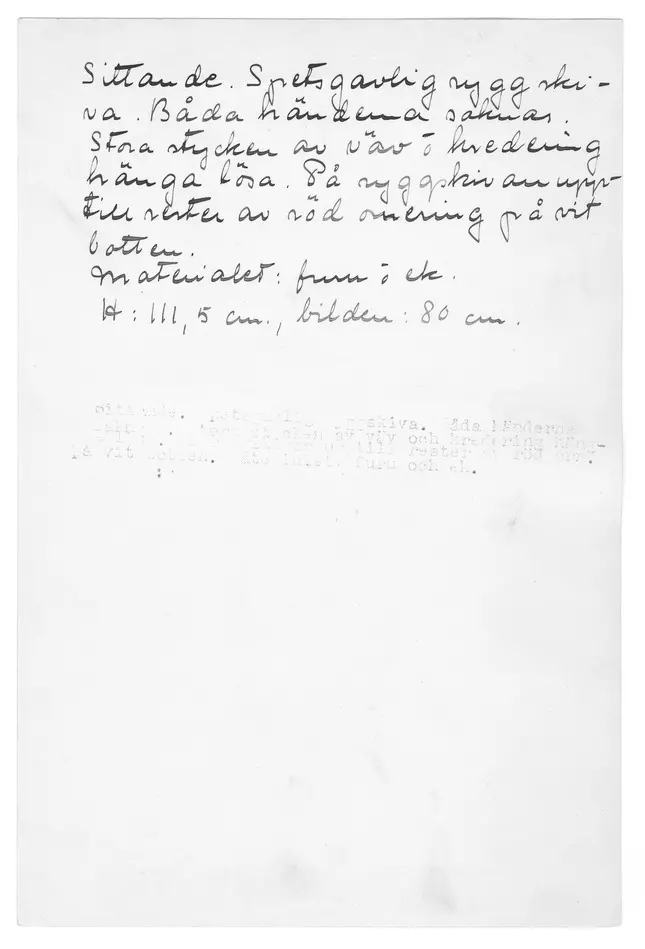 Sittande. Spetsgavlig ryggski-
va. Båda händerna saknas.
Stora stycken av väv o kredering
hänga lösa. På ryggskivan upp-
till rester av röd omering på vit
botten.
Materialet: furu o ek.
H: 111,5 cm., bilden: 80 cm.
skiva. händerna
av väv och kredering häng-
rester röd
på vit botten. furu och ek.